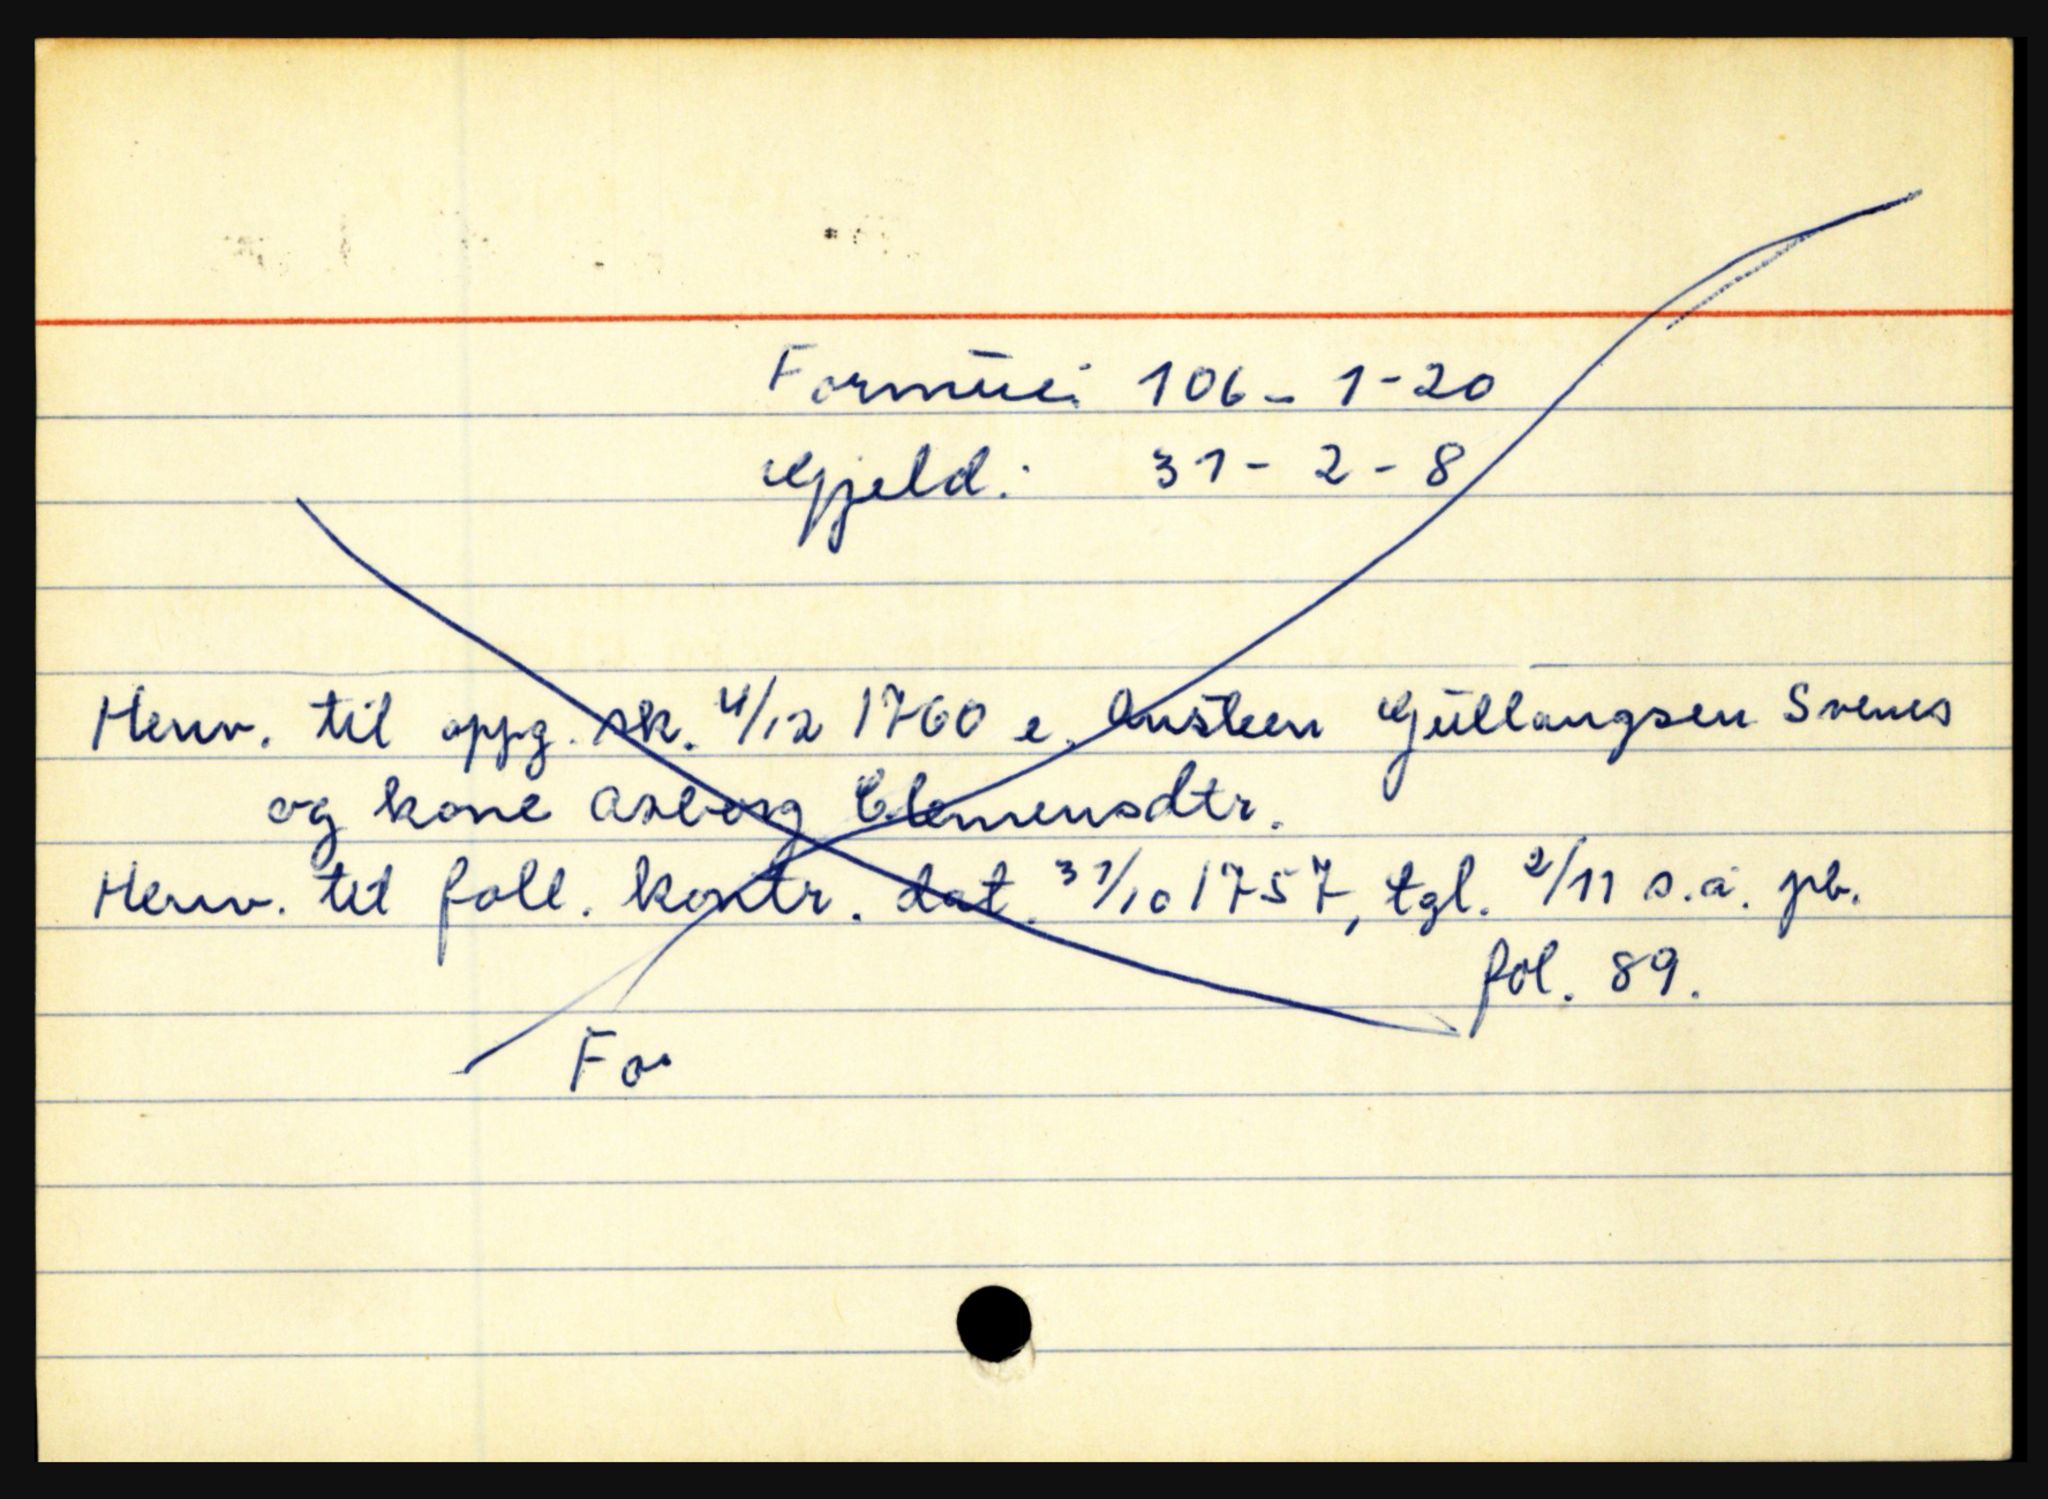 Formue: 106 - 1 - 20
Gjeld: 31 - 2 - 8
Henv. til oppg. sk. 4/12 1760 e. Ansteen Gullaugsen Svenes
og kone Asberg Clemensdtr.
Henv. til foll. kontr. dat. 31/10 1757, tgl. 2/11 s.å. pb.
fol. 89.
Fo